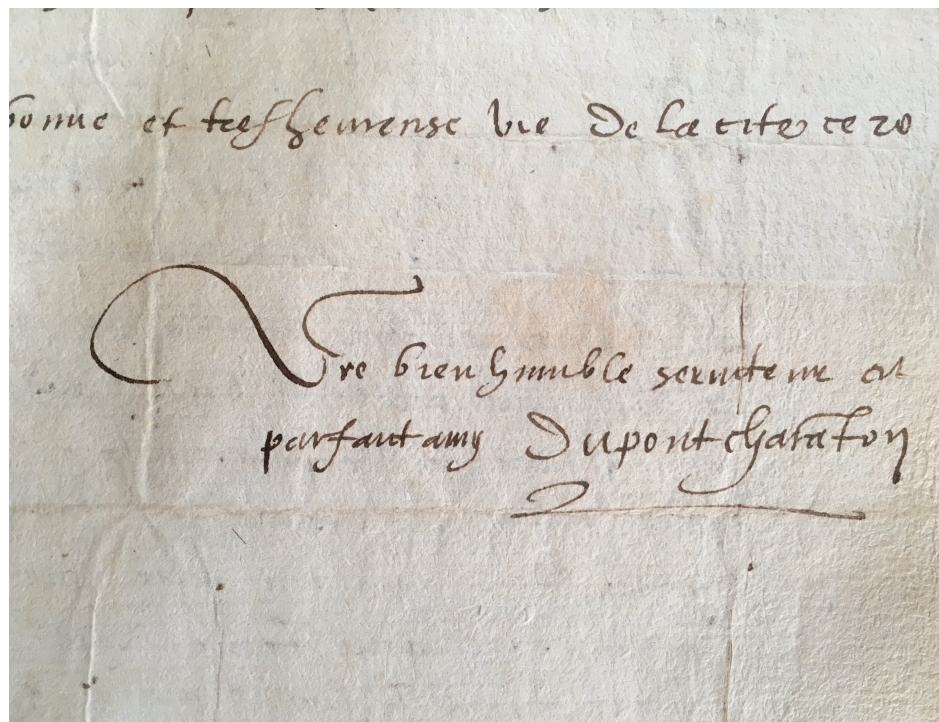 bonne et tresheureuse vie De la cite ce 20
Vre bien humble serviteur et
parfaict amy Dupontcharaton